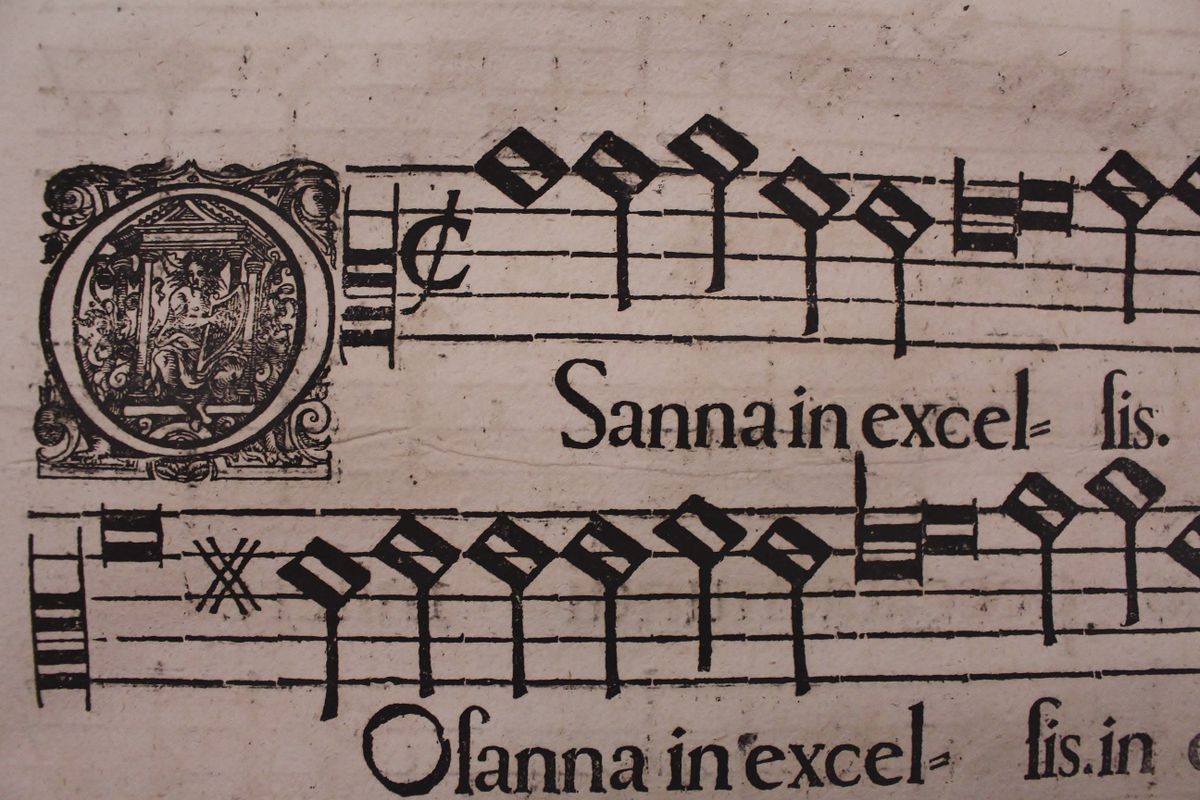 OSanna in excel= ſis.
Oſanna in excel= ſis. in